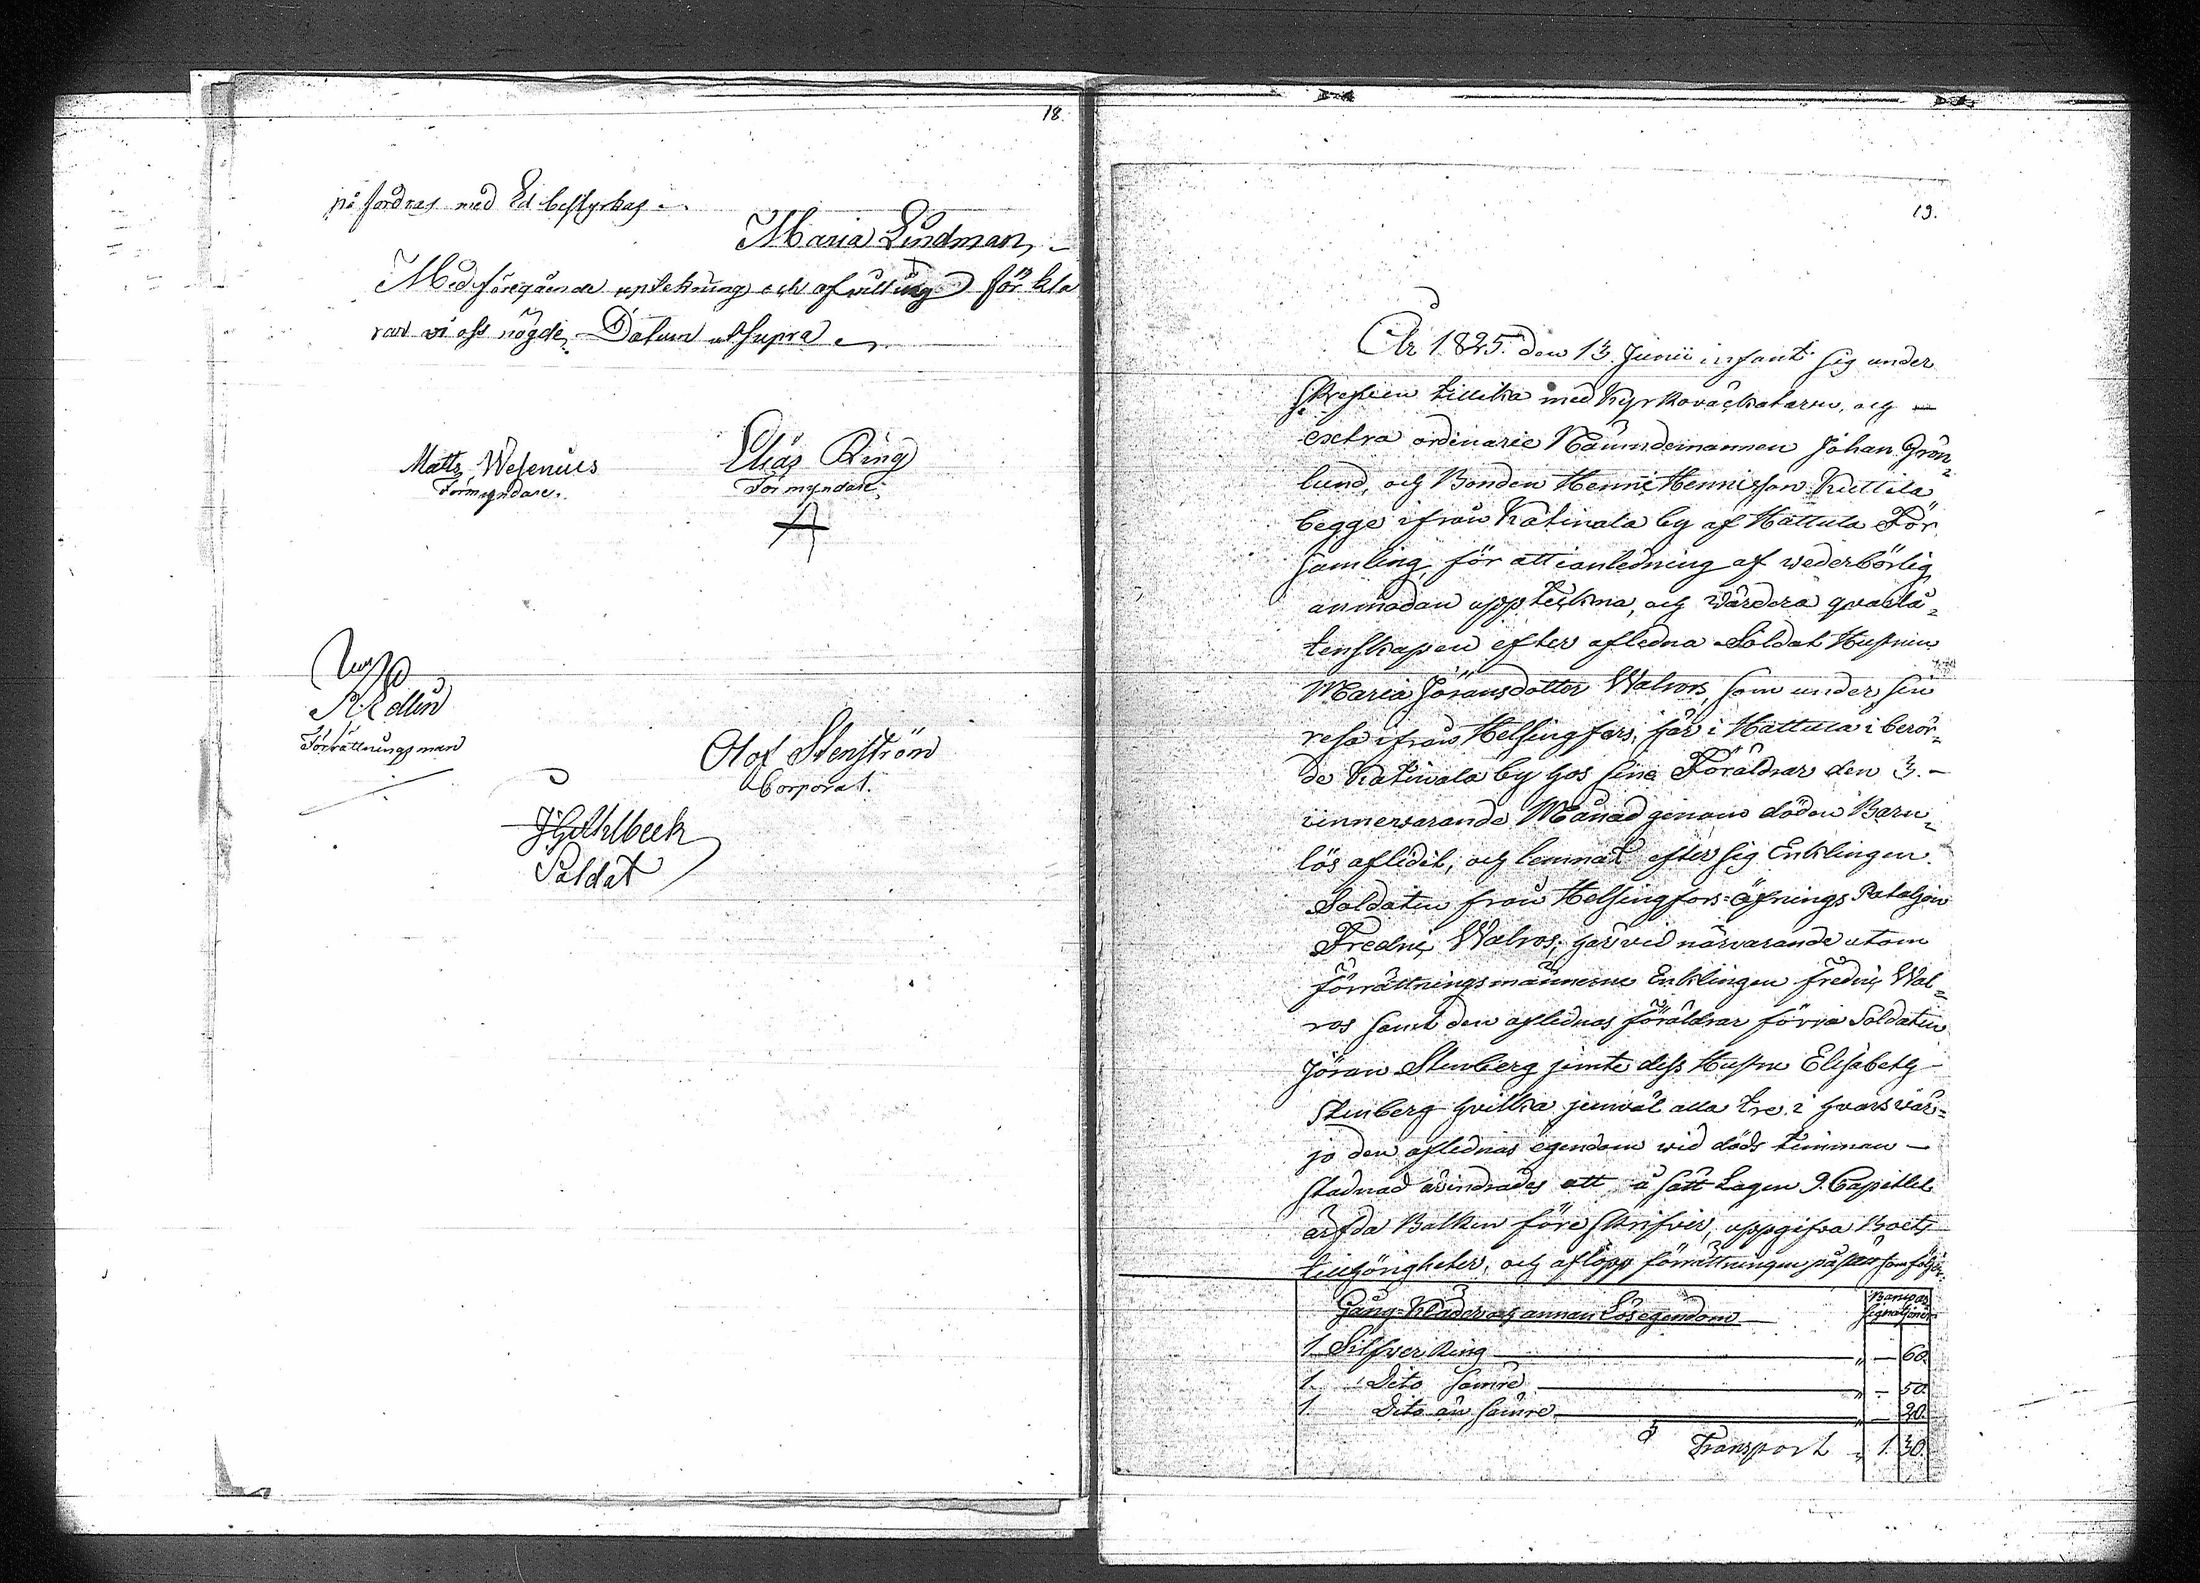 18.
på fordras med Ed bestyrkas.
Maria Lindman,
Med föregående uptekning och afvittring förkla
rar vi oss nögde, Datum utsupra
Matts Wesenius
Förmyndare.
Elias Ring
Förmyndare.
R. Edlin
Förrättningsman
Olof Stenström
Corporal.
J G Ahlbeck
Soldat
19.
År 1825. den 13. Junii infant sig under
skrefven tillika med Kyrkovächtaren, och
extra ordinarie Nämndemannen Johan Grön-
lund, och Bonden Henric Henricsson Kuttila
begge ifrån Katinala by af Hattula För
samling, för att i anledning af wederbörlig
anmodan uppteckna, och wärdera qvarlå-
tenskapen efter aflidna Soldat Hustrun
Maria Jöransdotter Walros, som under sin
resa ifrån Helsingfors, här i Hattula i berör-
de Katinala by hos sina Föräldrar den 3.
innevarande Månad genom döden Barn-
lös aflidit, och lemnat efter sig Enklingen
Soldaten från Helsingfors Öfnings Bataljon
Fredric Walros; här vid närvarande utom
förrättningsmännerne Enklingen Fredric Wal-
ros samt den aflidnas föräldrar förra Soldaten
Jöran Stenberg jemte dess Hustru Elisabeth
Stenberg hvilka jemväl alla tre i hvars vär-
jo den aflidnas egendom wid döds timman
stadnad ärindrades att, å sätt Lagen 9. Capitlet
ärfda Balken före skrifver, uppgifva Boets
tillhörigheter, och aflopp förrättningen på sätt som följer.
Gång-Kläder och annan Lösegendom
Banco as
signationer
1 Silfver Ring " — 60.
1. Dito sämre " — 50.
1. Dito än sämre " — 20.
Transport " 1. 30.